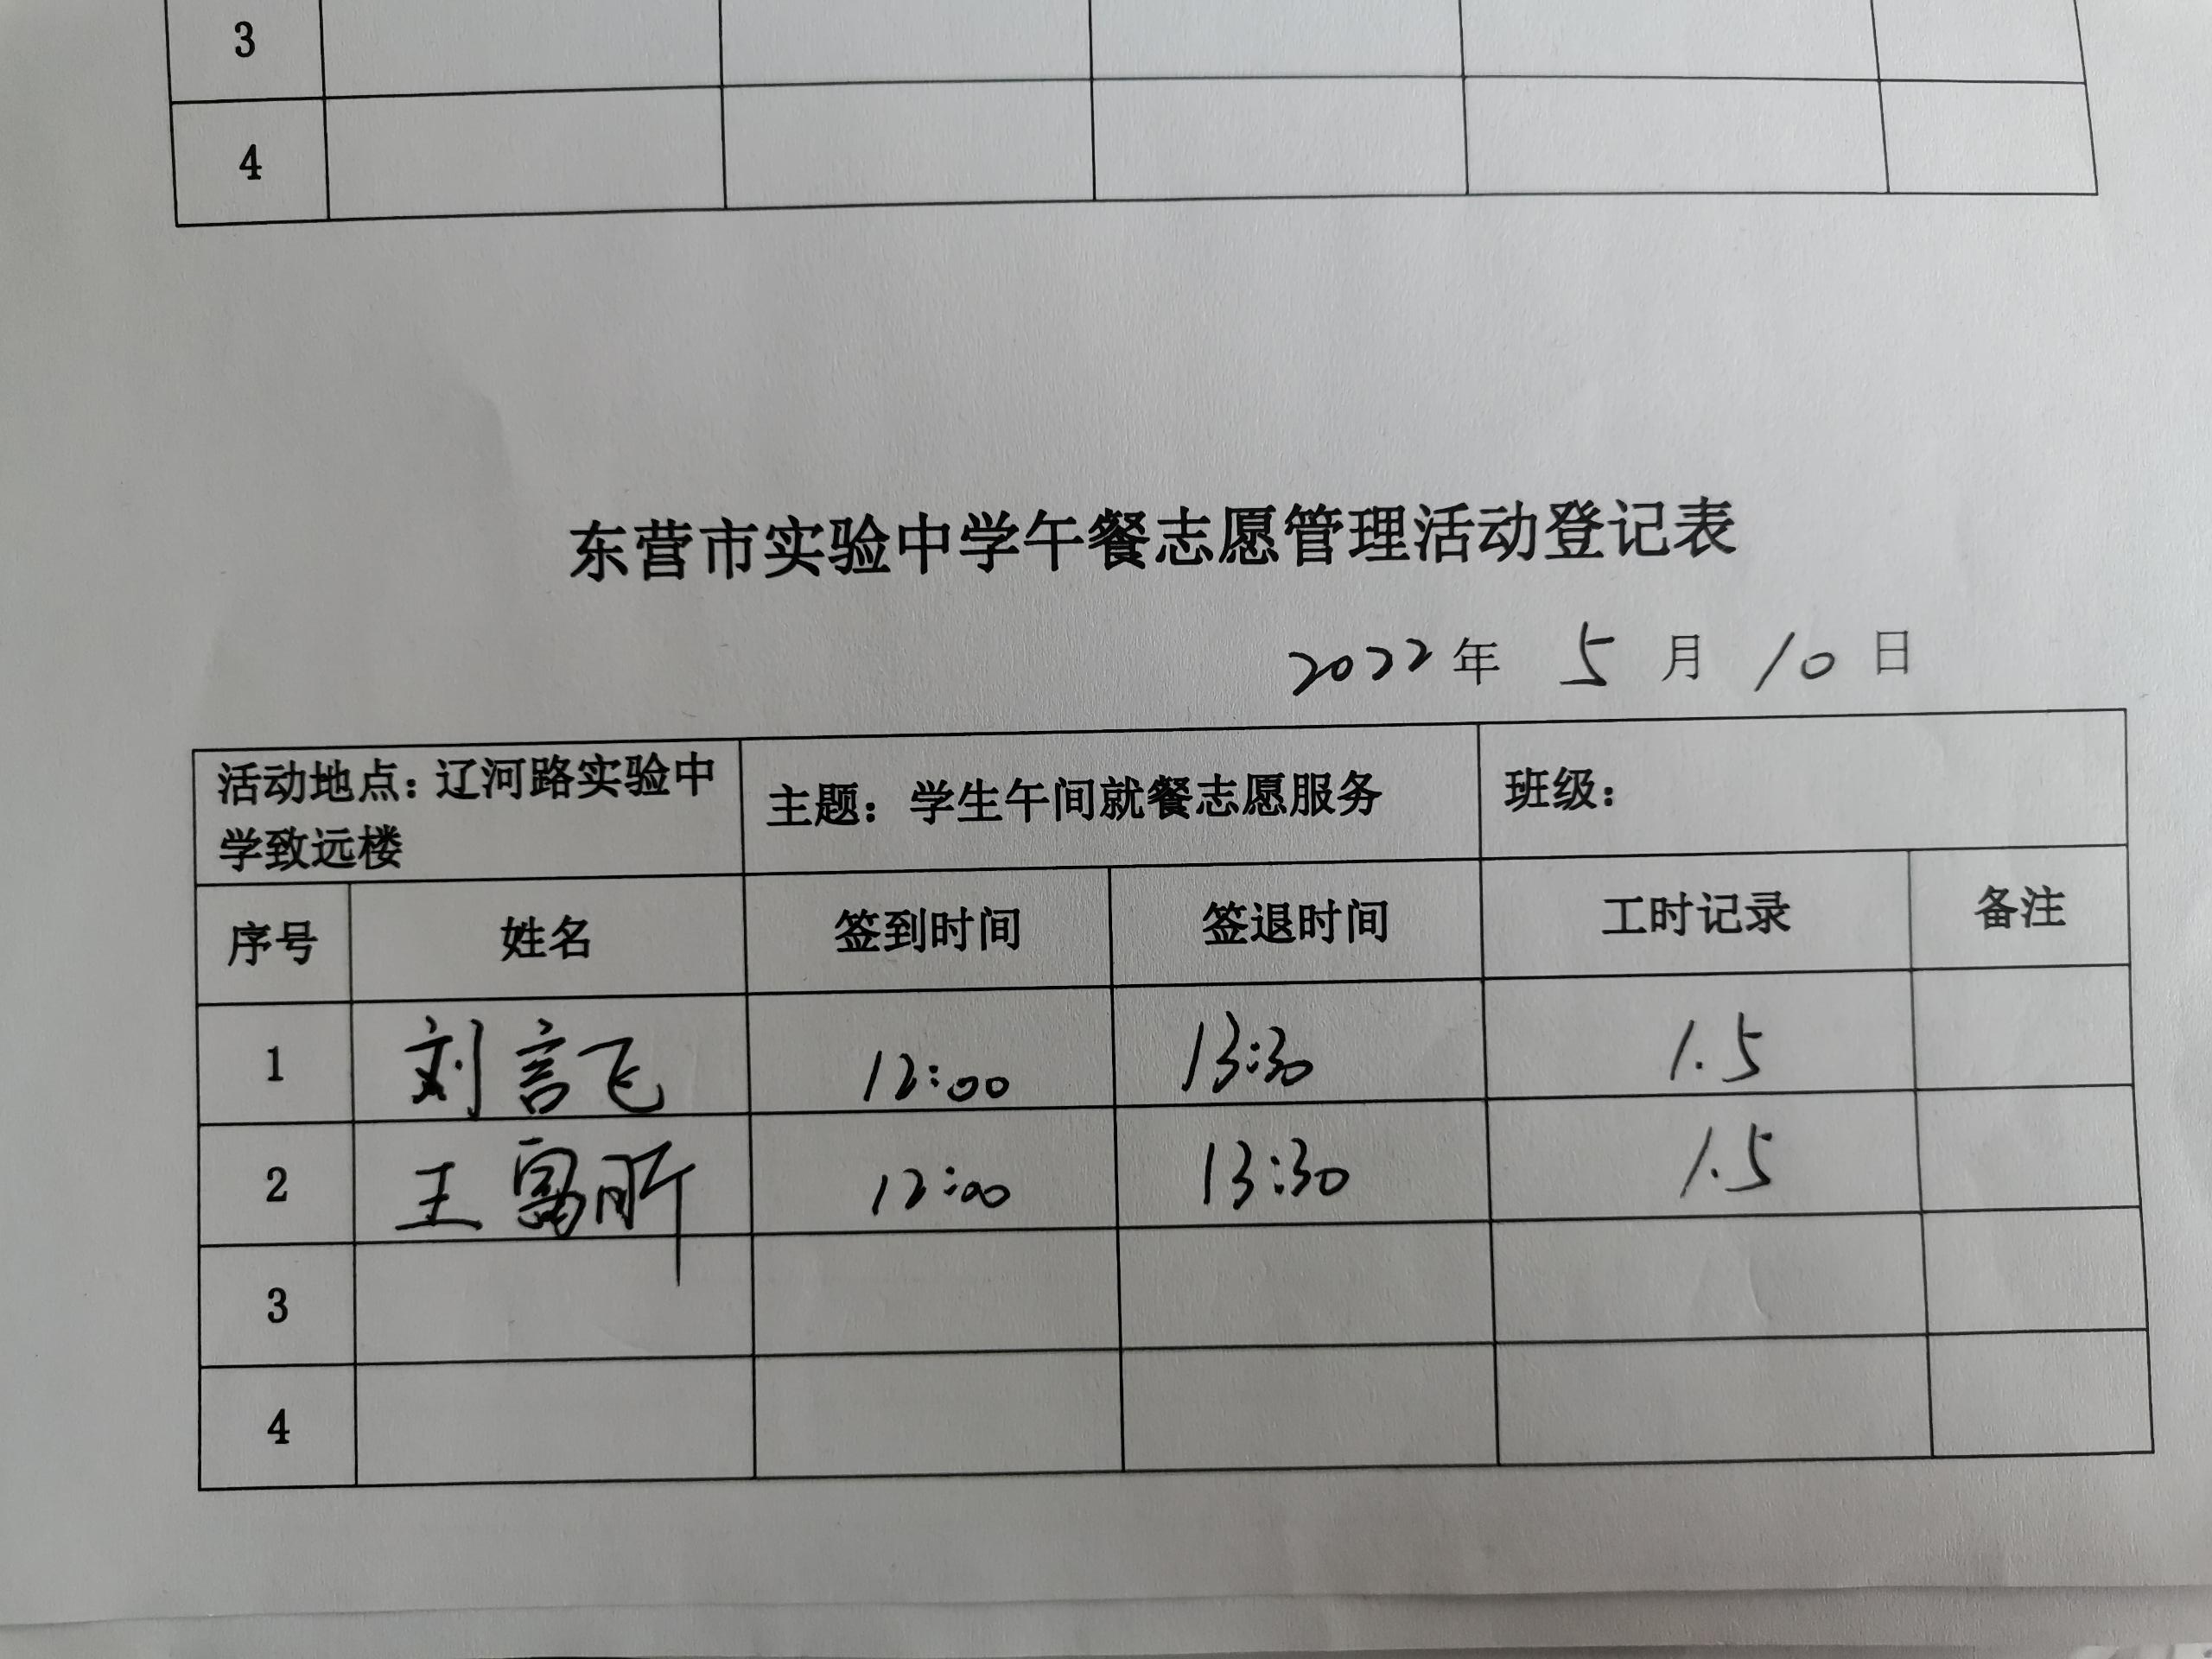 3
4
东营市实验中学午餐志愿管理活动登记表
2022年 5月 10日
活动地点：辽河路实验中
学致远楼
主题： 学生午间就餐志愿服务
班级：
序号 姓名 签到时间 签退时间 工时记录 备注
1 刘言飞 12:00 13:30 1.5
2 王 12:00 13:30 1.5
3
4